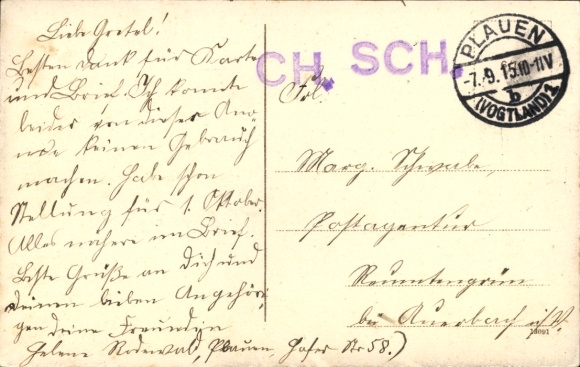 Liebe Gretel!
Besten Dank für Karte
und Brief. Ich konnte
leider von dieser An-
nonce keinen Gebrauch
machen. Habe schon
Stellung für 1. Oktober.
Alles nähere im Brief.
Beste Grüße an Dich und
Deinen lieben Angehöri-
gen Deine Freundin
Helene Rodewald, Plauen, Hofer Str 58.)
CH. SCH.
PLAUEN
-7.9.15.10-11V
b
(VOGTLAND) 2
Frl.
Marg. Schwabe,
Postagentur
Reumtengrün
bei Auerbach i/V.
13091